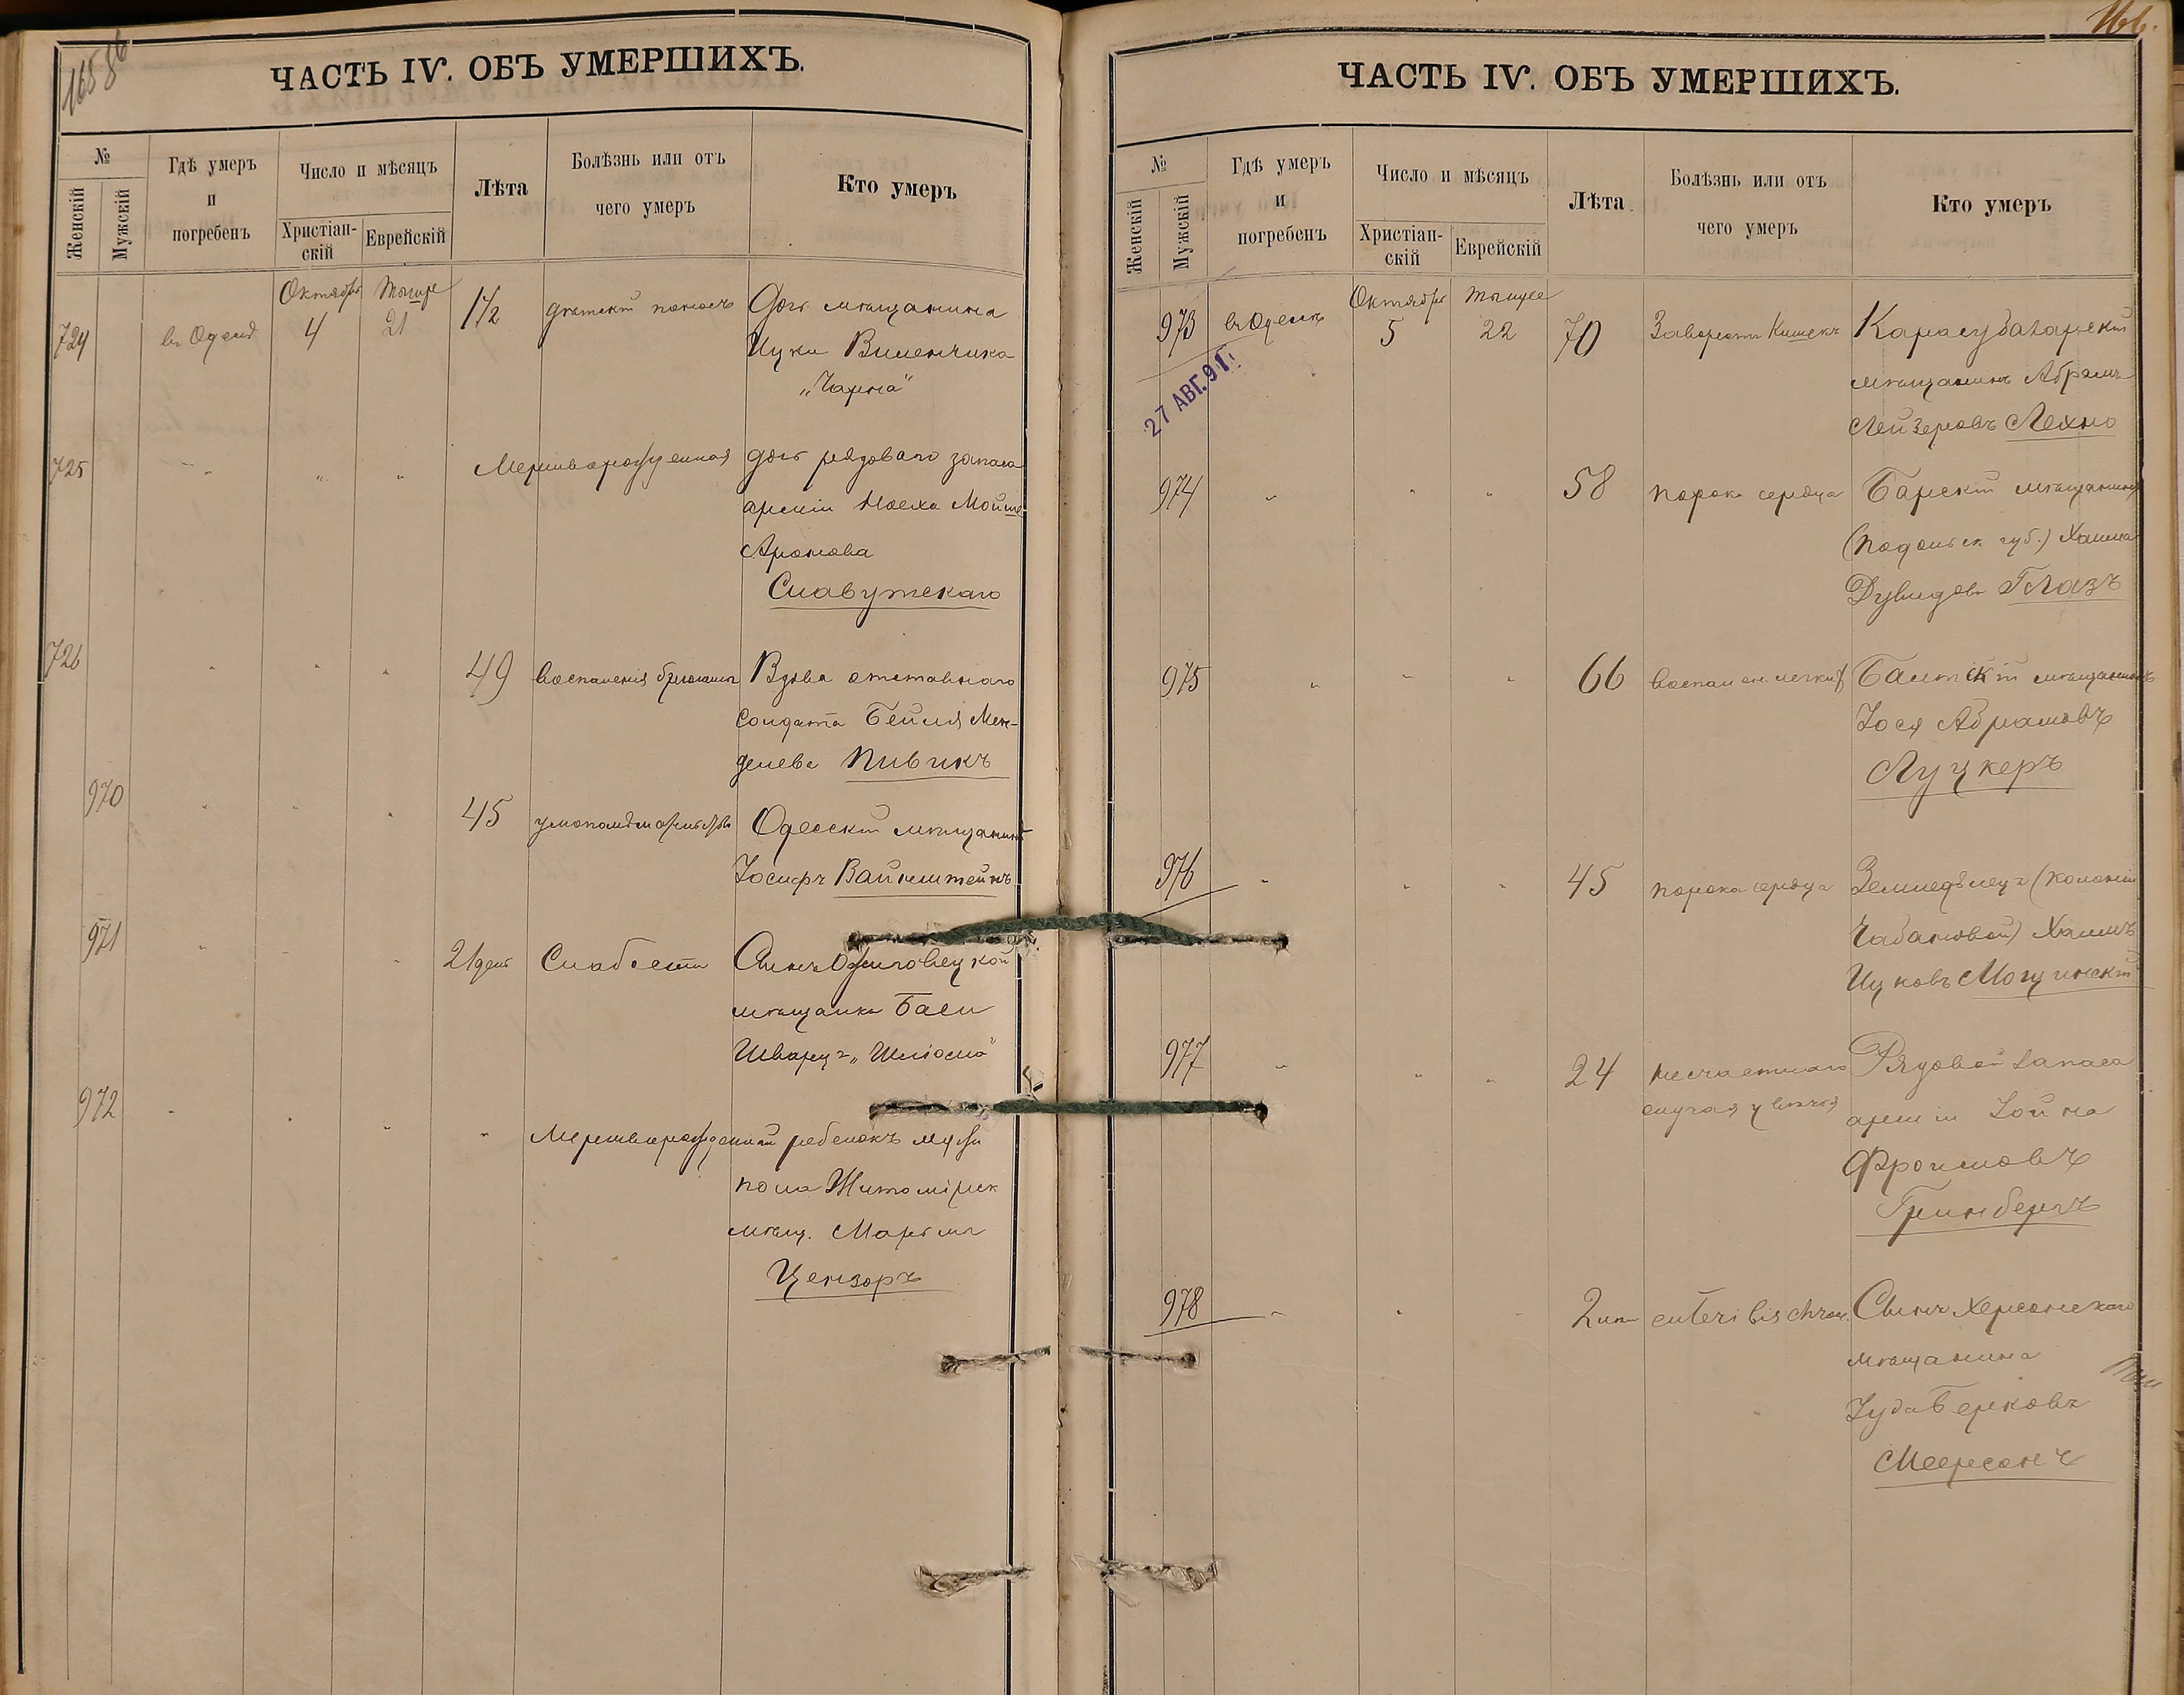 165 об
ЧАСТЬ IV. ОБЪ УМЕРШИХЪ.
№
Женскій
Мужскій
Гдѣ умеръ
и
погребенъ
Число и мѣсяцъ
Христіан-
скій
Еврейскій
Лѣта
Болѣзнь или отъ
чего умеръ
Кто умеръ
Октября Тишре
724 въ Одессѣ 4 21 1½ дѣтскій поносъ Дочь мѣщанина
Ицки Виленчика
„Чарна“
725 " " " Мертворожденная дочь рядового запаса
арміи Ноеха Мойше
Аронова
Славутскаго
726 " " " 49 воспаленія брюшины Вдова отставного
солдата Бейля Мен-
делева Пивикъ
970 " " " 45 умопомѣшательства Одесскій мѣщанинъ
Іосифъ Вайнштейнъ
971 " " " 21 день Слабости Сынъ
мѣщанки Баси
Шварцъ „Шлiома“
972 " " " " Мертворожденный ребенокъ муж.
пола Житомірск
мѣщ.
Цензоръ
166.
ЧАСТЬ IV. ОБЪ УМЕРШИХЪ.
№
Женскій
Мужскій
Гдѣ умеръ
и
погребенъ
Число и мѣсяцъ
Христіан-
скій
Еврейскій
Лѣта
Болѣзнь или отъ
чего умеръ
Кто умеръ
Октября Тишре
973 въ Одессѣ 5 22 70 Заворотъ Кишекъ Карасубазарскій
мѣщанинъ Абрамъ
Лейзеровъ Лехно
27 АВГ. 91
974 " " " 58 порока сердца Барскій мѣщанинъ
(Подольск. губ.) Хаимъ
Дувидовъ Глазъ
975 " " " 66 воспален. легкихъ Балтскій мѣщанинъ
Іося Абрамовъ
Луцкеръ
976 " " " 45 порока сердца Земледѣлецъ (колоніи
Хаимъ
Ицковъ Мощинскій
977 " " " 24 несчастнаго Рядовой запаса
случая арміи Зойна
Фроимовъ
Гринбергъ
978 " " " 2 enteritis chron. Сынъ Херсонскаго
мѣщанина
Іуда Берковъ
Меерсонъ